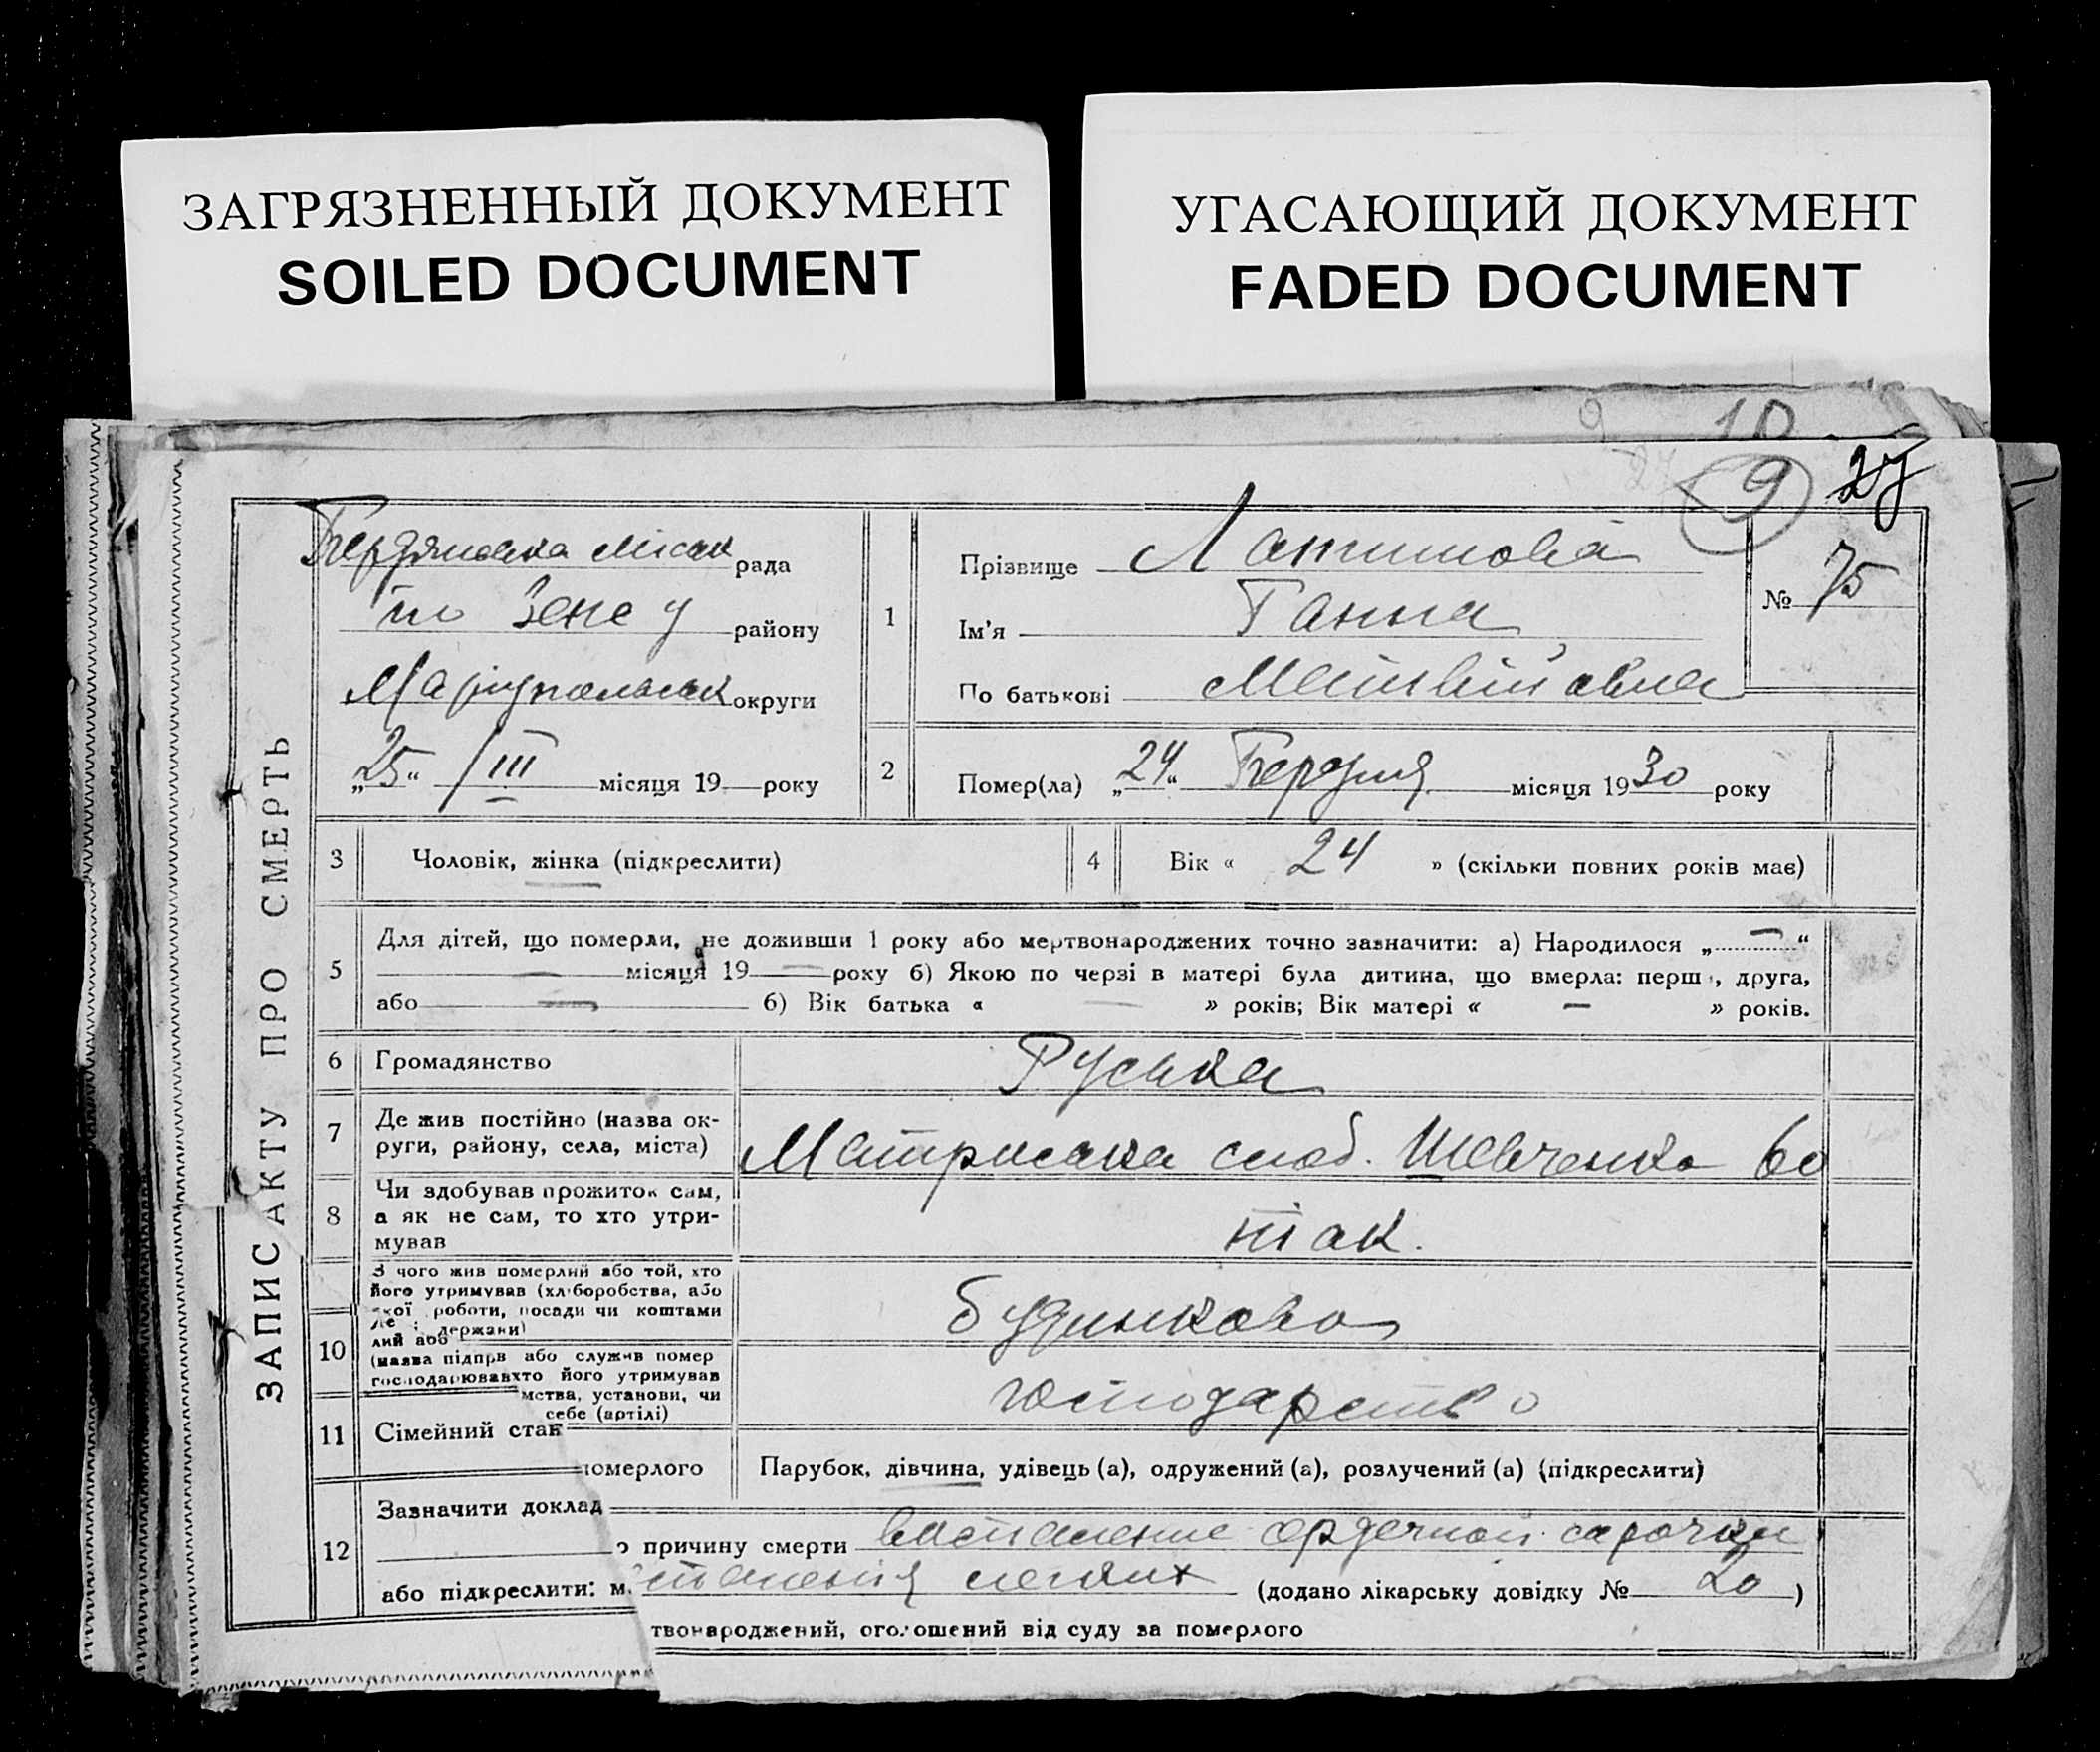 ЗАГРЯЗНЕННЫЙ ДОКУМЕНТ
SOILED DOCUMENT
УГАСАЮЩИЙ ДОКУМЕНТ
FADED DOCUMENT
9
27
ЗАПИС АКТУ ПРО СМЕРТЬ
Бердянська міськ рада
району
Маріупольськ округи
„25“ / III місяця 19 року
1
Прізвище
Ім'я Ганна
По батькові Матвіївна
№ 75
2
Помер(ла) „24“ Березня місяця 1930 року
3 Чоловік, жінка (підкреслити)
4 Вік « 24 » (скільки повних років має)
5
Для дітей, що померли, не доживши 1 року або мертвонароджених точно зазначити: а) Народилося „ — “
— місяця 19 — року б) Якою по черзі в матері була дитина, що вмерла: перш , друга,
або — б) Вік батька « — » років; Вік матері « — » років.
6 Громадянство Руська
7 Де жив постійно (назва ок-
руги, району, села, міста)
слоб. Шевченка 60
8 Чи здобував прожиток сам,
а як не сам, то хто утри-
мував
так.
З чого жив померлий або той, хто
його утримував (хліборобства, або
роботи, посади чи коштами
держави)
будинкове
10
лий або
(назва підпрв або служив помер
господарювавхто його утримував
мства, установи, чи
себе (артілі)
господарство
11 Сімейний стан
померлого
Парубок, дівчина, удівець (а), одружений (а), розлучений (а) (підкреслити)
12
Зазначити доклад
о причину смерти воспаление сердечной сорочки
або підкреслити: м. легких (додано лікарську довідку № 20 )
твонароджений, оголошений від суду за померлого